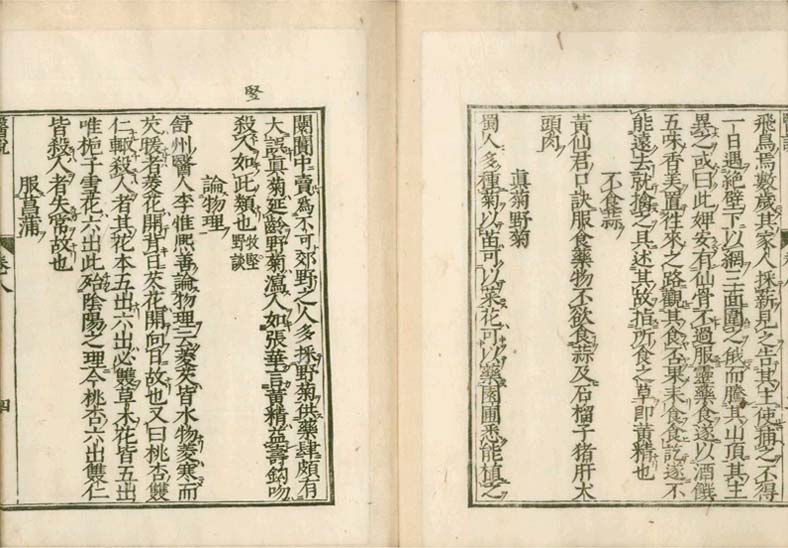 飛鳥焉數歲其家人採薪見之告其主使捕之不得
一日遇絕壁下以網三面圍之俄而騰其山頂其主
異之或曰此婢安有仙骨不過服靈藥食遂以酒饌
五味香美置徃來之路觀其食否果来食食訖遂不
能遠去就擒之具述其故指所食之草即黃精也
不食蒜
黃仙君口訣服食藥物不飲食蒜及石榴子猪肝犬
頭肉
眞菊野菊
蜀人多種菊以苗可以菜花可以藥園圃悉能植之
閴闠中賣爲不可郊野之人多採野菊供藥肆頗有
大誤眞菊延齡野菊瀉人如張華言黃精益壽鈎吻
殺人如此類也牧竪野談
竪
論物理
舒州醫人李惟熈善論物理云菱芡皆水物菱寒而
芡暖者菱花開背日芡花開向日故也又曰桃杏雙
仁輙殺人者其花本五出六出必雙草木花皆五出
唯梔子雪花六出此殆陰陽之理今桃杏六出雙仁
皆殺人者失常故也
服菖蒲
醫說
卷八
四